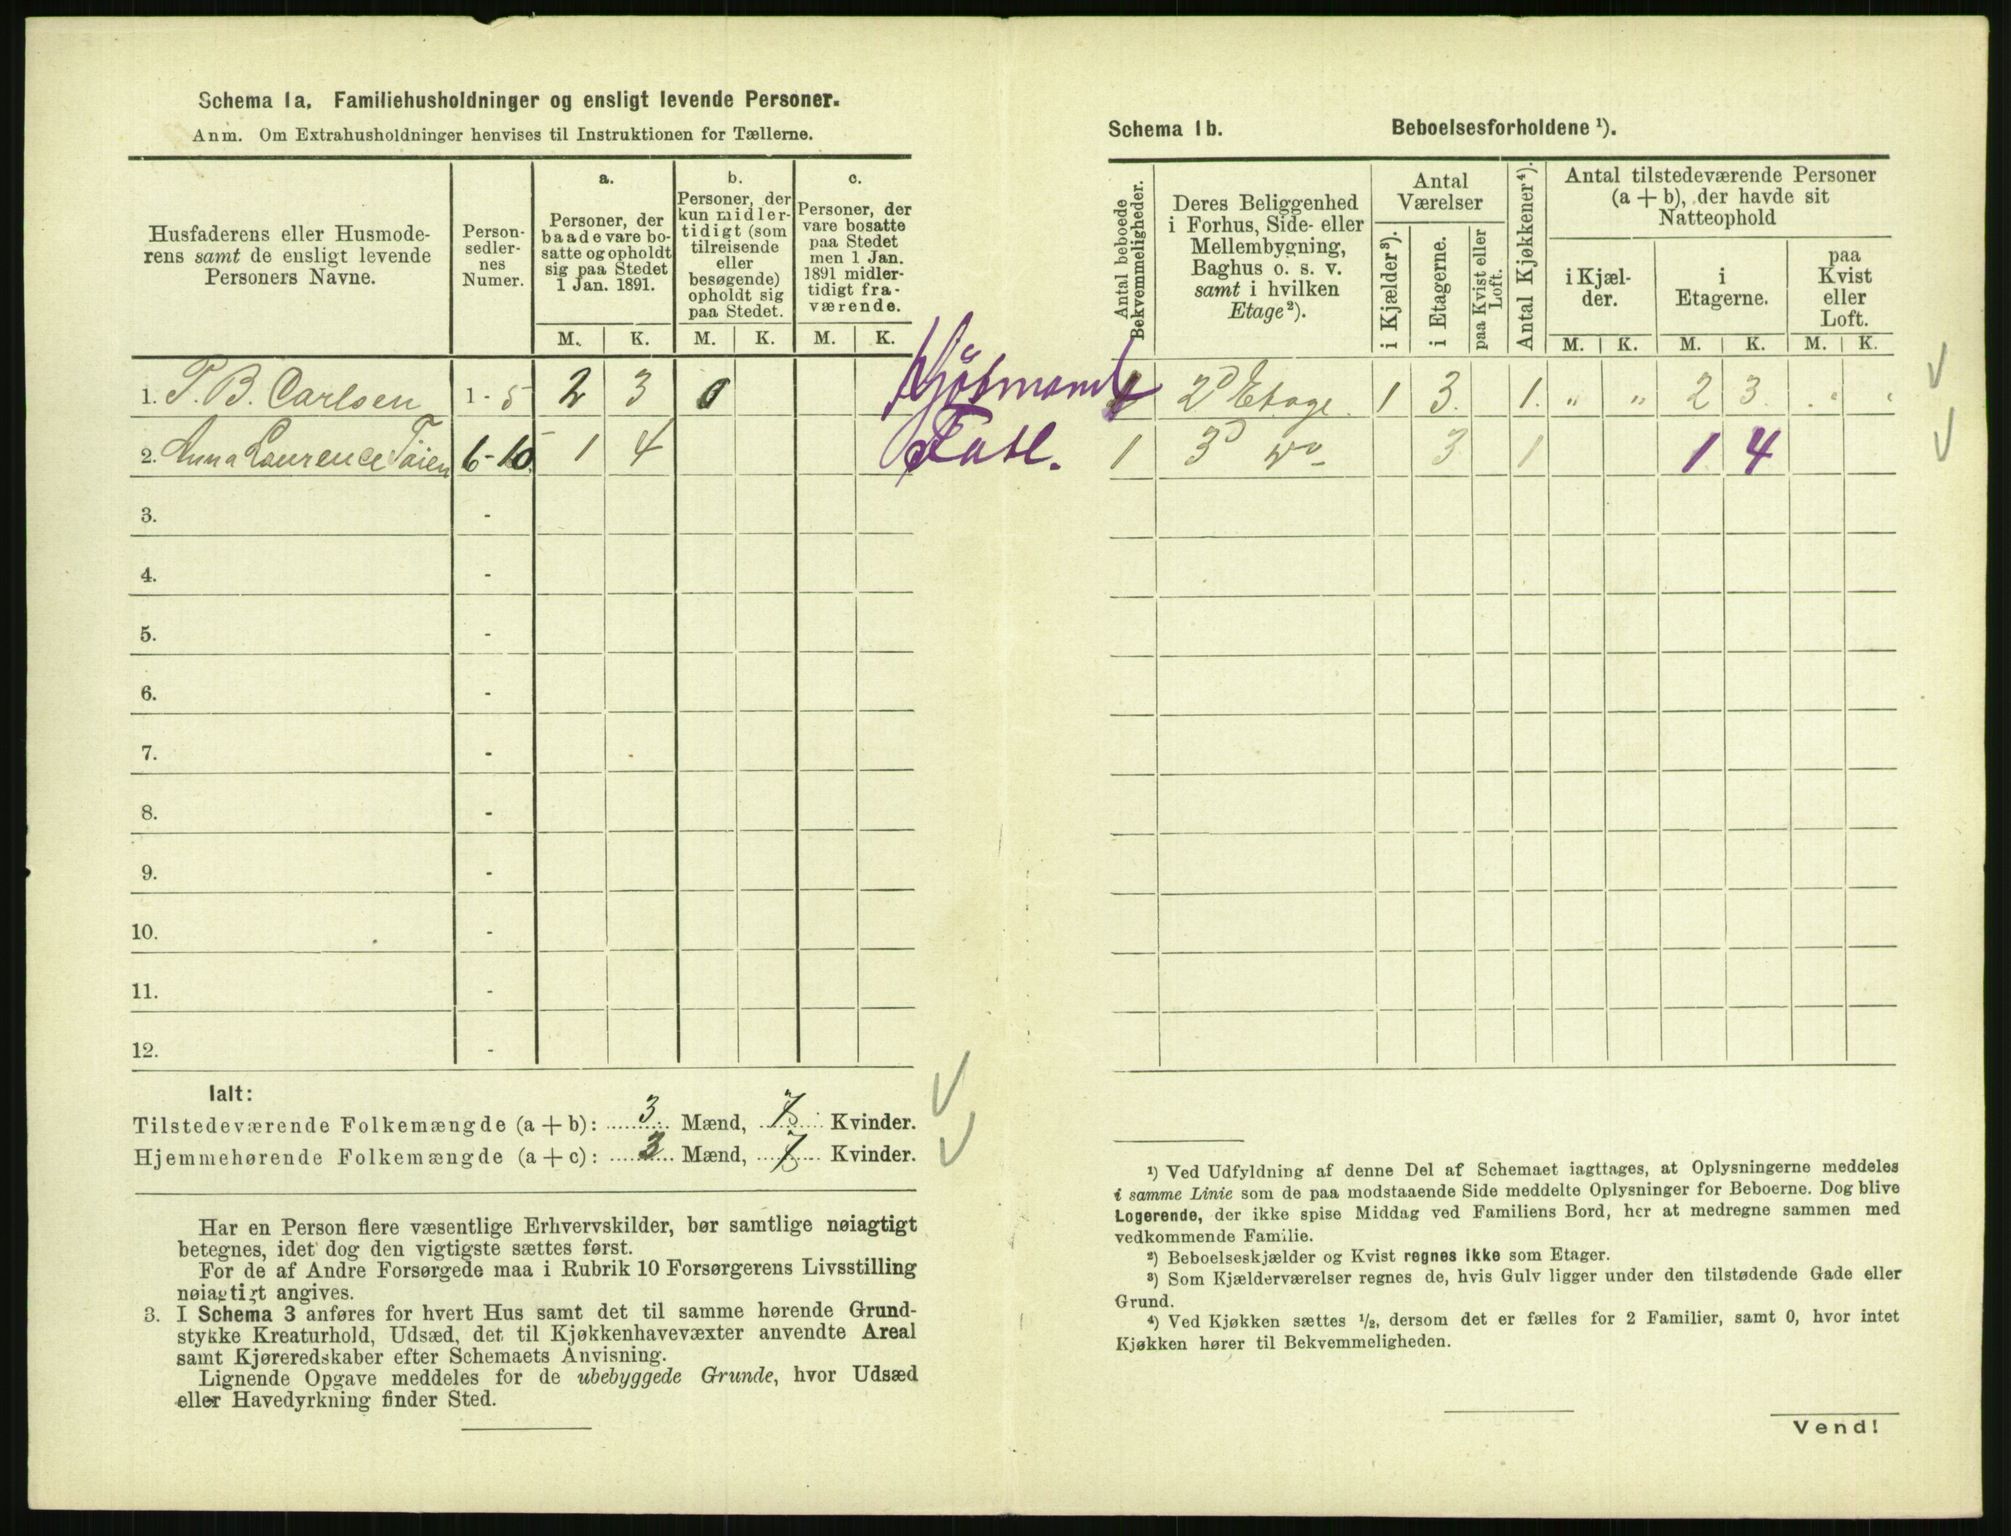 Schema 1a. Familiehusholdninger og ensligt levende Personer.
Anm. Om Extrahusholdninger henvises til Instruktionen for Tællerne.
Husfaderens eller Husmode-
rens samt de ensligt levende
Personers Navne.
Person-
sedler-
nes
Numer.
a.
Personer, der
baade vare bo-
satte og opholdt
sig paa Stedet
1 Jan. 1891.
b.
Personer, der
kun midler-
tidigt (som
tilreisende
eller
besøgende)
opholdt sig
paa Stedet.
c.
Personer, der
vare bosatte
paa Stedet
men 1 Jan.
1891 midler-
tidigt fra-
værende.
M. K. M. K. M. K.
1. T. B. Carlsen 1 - 5 2 3 0 Kjøbmand
2. Anna Laurence Tøien 6 - 10 1 4
3. -
4. -
5. -
6. -
7. -
8. -
9. -
10. -
11. -
12. -
Ialt:
Tilstedeværende Folkemængde (a + b): 3 Mænd, 7 Kvinder.
Hjemmehørende Folkemængde (a + c): 3 Mænd, 7 Kvinder.
Har en Person flere væsentlige Erhvervskilder, bør samtlige nøiagtigt
betegnes, idet dog den vigtigste sættes først.
For de af Andre Forsørgede maa i Rubrik 10 Forsørgerens Livsstilling
nøiagtigt angives.
3. I Schema 3 anføres for hvert Hus samt det til samme hørende Grund-
stykke Kreaturhold, Udsæd, det til Kjøkkenhavevæxter anvendte Areal
samt Kjøreredskaber efter Schemaets Anvisning.
Lignende Opgave meddeles for de ubebyggede Grunde, hvor Udsæd
eller Havedyrkning finder Sted.
Schema 1b. Beboelsesforholdene ¹).
Antal beboede
Bekvemmeligheder.
Deres Beliggenhed
i Forhus, Side- eller
Mellembygning,
Baghus o. s. v.
samt i hvilken
Etage²).
Antal
Værelser
i Kjælder³).
i Etagerne.
paa Kvist eller
Loft.
Antal Kjøkkener⁴).
Antal tilstedeværende Personer
(a + b), der havde sit
Natteophold
i Kjæl-
der.
i
Etagerne.
paa
Kvist
eller
Loft.
M. K. M. K. M. K.
1 2d Etage. 1 3. 1. „ „ 2 3. „ „
1 3d do 3 1 1 4
¹) Ved Udfyldning af denne Del af Schemaet iagttages, at Oplysningerne meddeles
i samme Linie som de paa modstaaende Side meddelte Oplysninger for Beboerne. Dog blive
Logerende, der ikke spise Middag ved Familiens Bord, her at medregne sammen med
vedkommende Familie.
²) Beboelseskjælder og Kvist regnes ikke som Etager.
³) Som Kjælderværelser regnes de, hvis Gulv ligger under den tilstødende Gade eller
Grund.
⁴) Ved Kjøkken sættes ½, dersom det er fælles for 2 Familier, samt 0, hvor intet
Kjøkken hører til Bekvemmeligheden.
Vend!